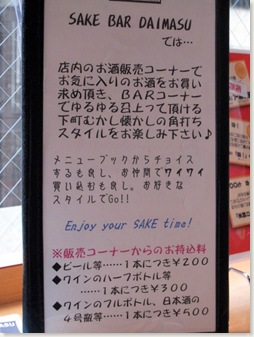 SAKE BAR DAIMASU
では…
店内のお酒販売コーナーで
お気に入りのお酒をお買い
求め頂き、BARコーナー
でゆるゆる召上って頂ける
下町むかし懐かしの角打ち
スタイルをお楽しみ下さい♪
メニューブックからチョイス
するも良し、お仲間でワイワイ
買い込むも良し。お好きな
スタイルでGo!!
Enjoy your SAKE time!
※販売コーナーからのお持込料
◆ビール等……1本につき¥200
◆ワインのハーフボトル等
……1本につき¥300
◆ワインのフルボトル、日本酒の
4号瓶等……1本につき¥500